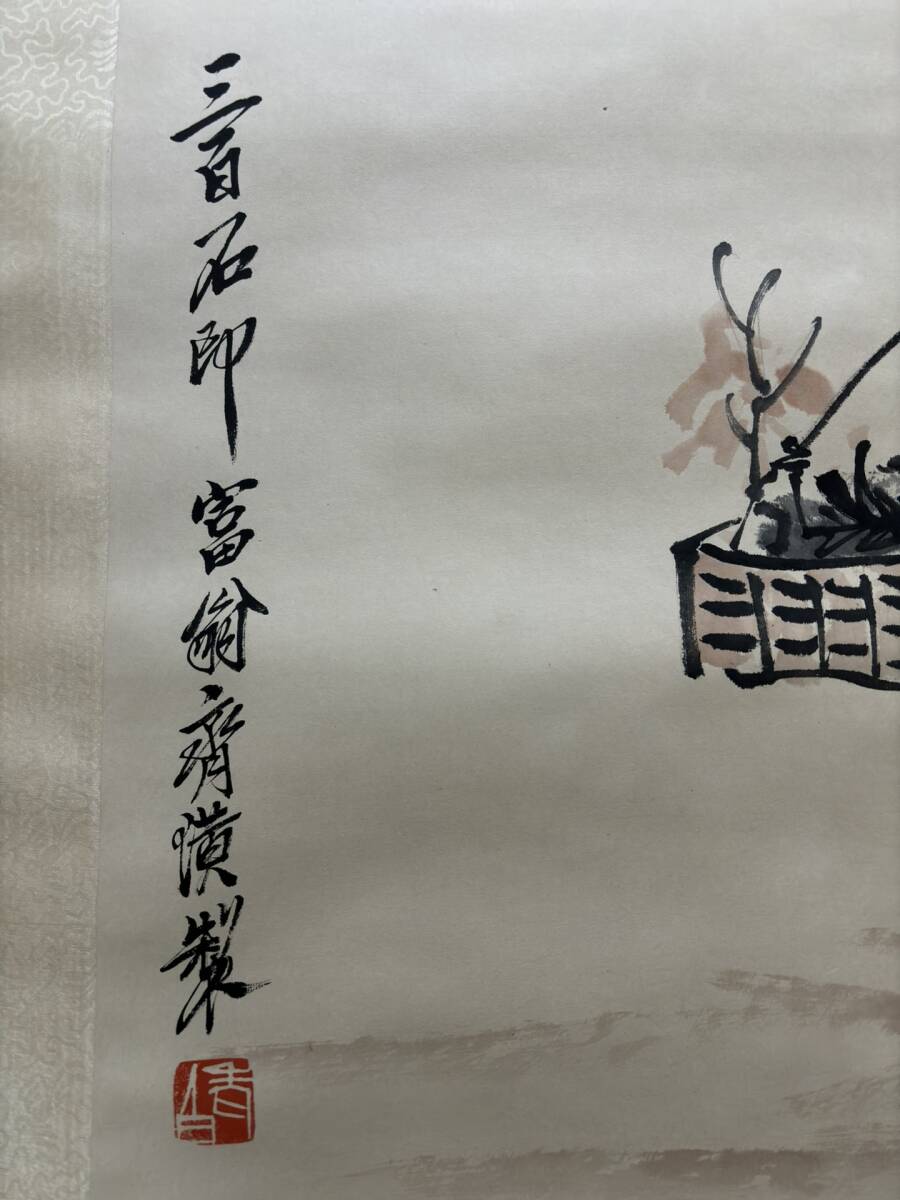 三百石印富翁齊璜製